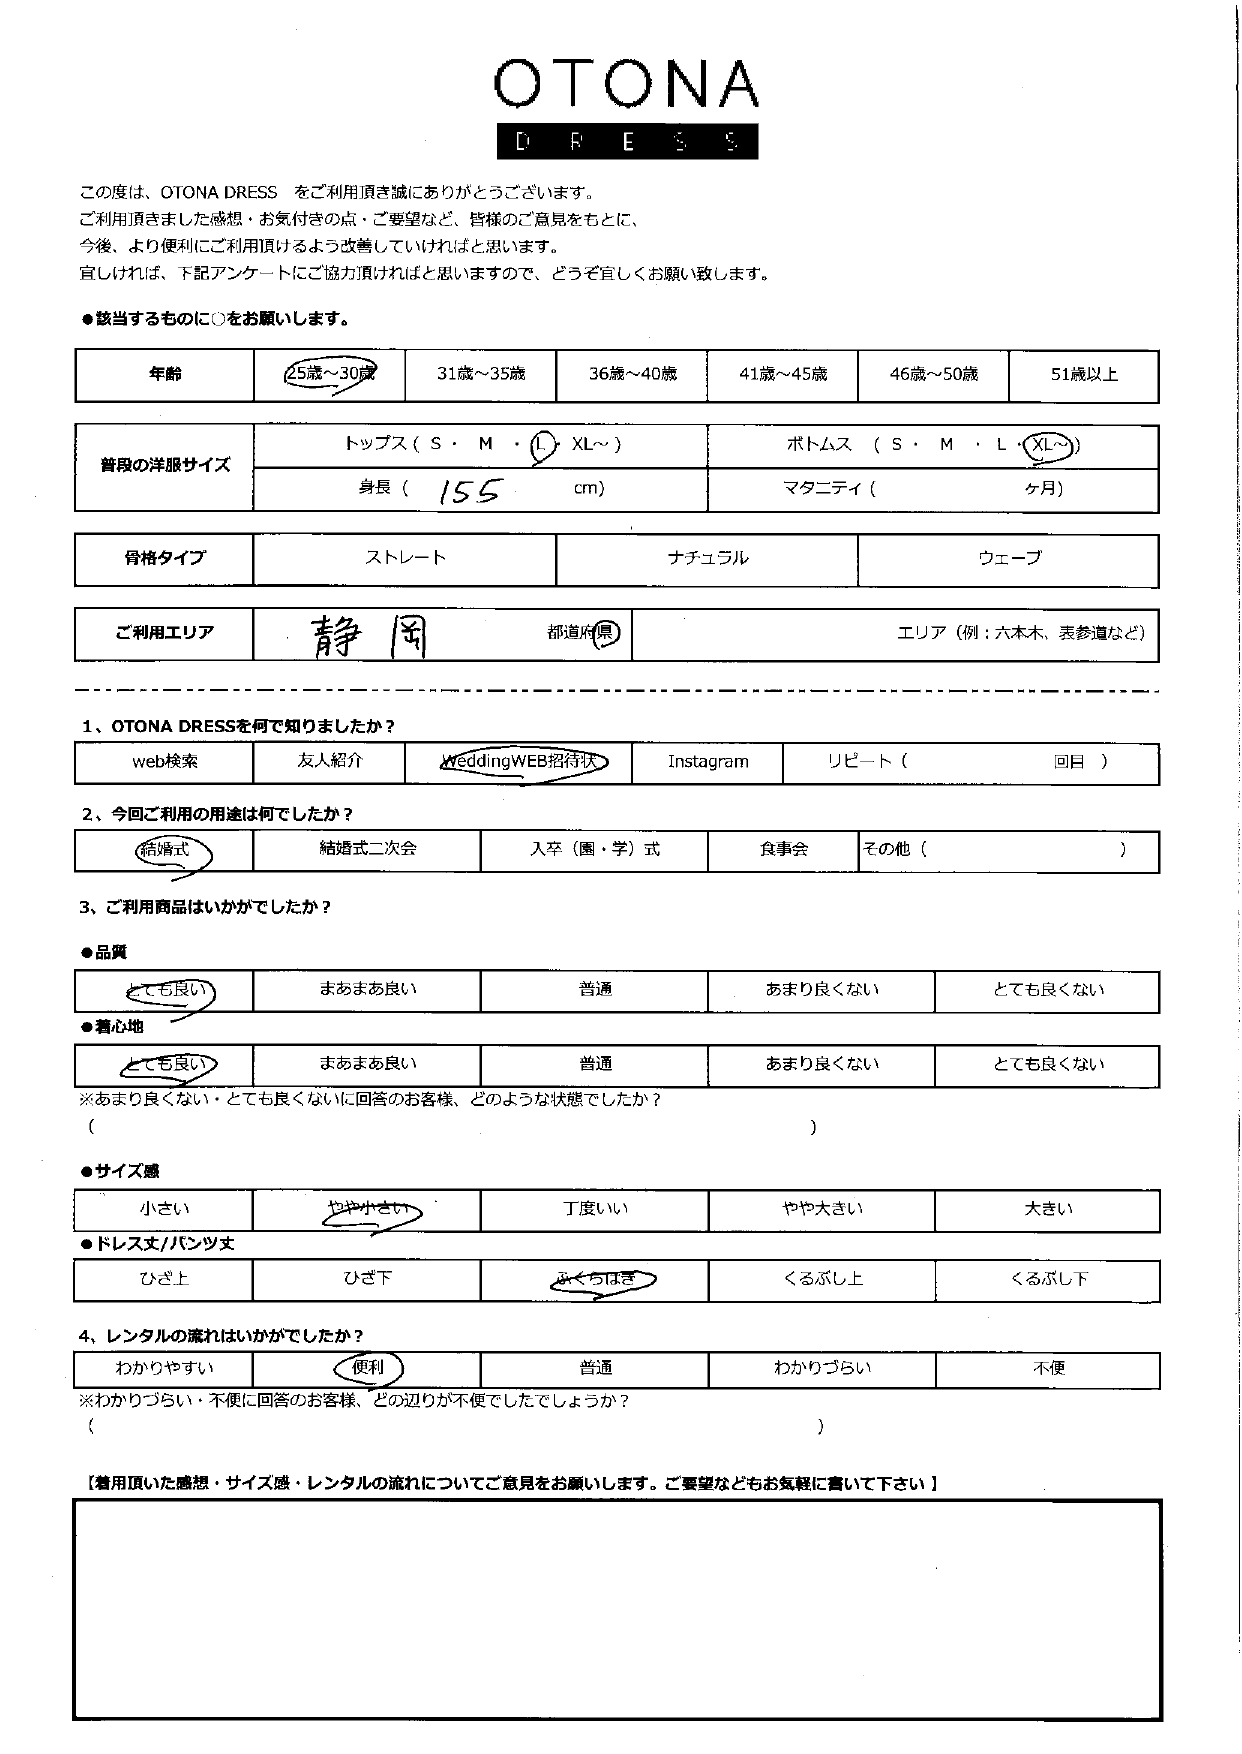 OTONA
DRESS
この度は、OTONA DRESS　をご利用頂き誠にありがとうございます。
ご利用頂きました感想・お気付きの点・ご要望など、皆様のご意見をもとに、
今後、より便利にご利用頂けるよう改善していければと思います。
宜しければ、下記アンケートにご協力頂ければと思いますので、どうぞ宜しくお願い致します。
●該当するものに○をお願いします。
年齢 25歳～30歳 31歳～35歳 36歳～40歳 41歳～45歳 46歳～50歳 51歳以上
普段の洋服サイズ トップス ( S ・ M ・ L ・ XL～ ) ボトムス ( S ・ M ・ L ・ XL～ )
身長 ( 155 cm) マタニティ ( ヶ月)
骨格タイプ ストレート ナチュラル ウェーブ
ご利用エリア 静岡 都道府県 エリア（例：六本木、表参道など）
1、OTONA DRESSを何で知りましたか？
web検索 友人紹介 WeddingWEB招待状 Instagram リピート ( 回目 )
2、今回ご利用の用途は何でしたか？
結婚式 結婚式二次会 入卒（園・学）式 食事会 その他 ( )
3、ご利用商品はいかがでしたか？
●品質
とても良い まあまあ良い 普通 あまり良くない とても良くない
●着心地
とても良い まあまあ良い 普通 あまり良くない とても良くない
※あまり良くない・とても良くないに回答のお客様、どのような状態でしたか？
( )
●サイズ感
小さい やや小さい 丁度いい やや大きい 大きい
●ドレス丈/パンツ丈
ひざ上 ひざ下 ふくらはぎ くるぶし上 くるぶし下
4、レンタルの流れはいかがでしたか？
わかりやすい 便利 普通 わかりづらい 不便
※わかりづらい・不便に回答のお客様、どの辺りが不便でしたでしょうか？
( )
【着用頂いた感想・サイズ感・レンタルの流れについてご意見をお願いします。ご要望などもお気軽に書いて下さい 】